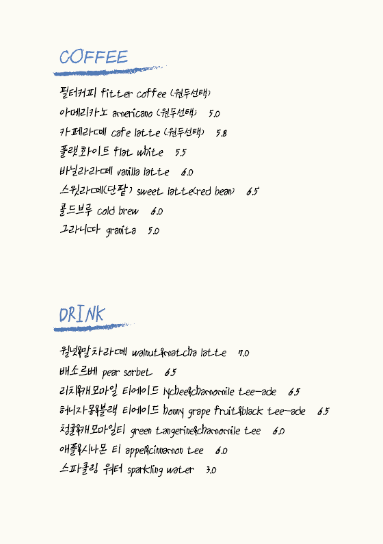 COFFEE
필터커피 fitter coffee (원두선택)
아메리카노 americano (원두선택) 5.0
카페라떼 cafe latte (원두선택) 5.8
플랫화이트 flat white 5.5
바닐라라떼 vanilla latte 6.0
스윗라떼(단팥) sweet latte(red bean) 6.5
콜드브루 cold brew 6.0
그라니따 granita 5.0
DRINK
월넛&말차라떼 walnut&matcha latte 7.0
배소르베 pear sorbet 6.5
리치&캐모마일 티에이드 lychee&chamomile tee-ade 6.5
허니자몽&블랙 티에이드 honny grape fruit&black tee-ade 6.5
청귤&캐모마일티 green tangerine&chamomile tee 6.0
애플&시나몬 티 appe&cinnamon tee 6.0
스파클링 워터 sparkling water 3.0